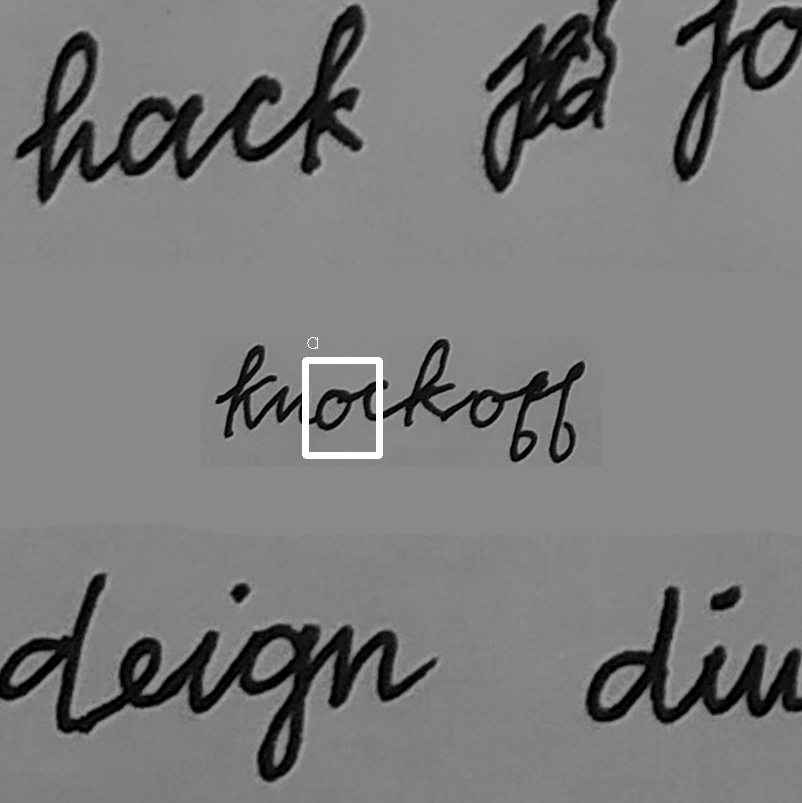 hack jo
a
knockoff
deign